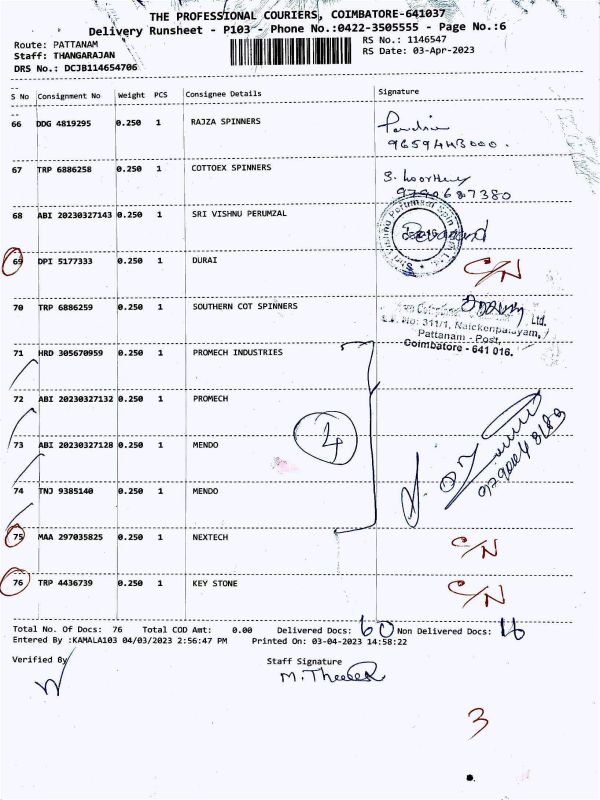 THE PROFESSIONAL COURIERS, COIMBATORE-641037
Delivery Runsheet - P103 - Phone No.:0422-3505555 - Page No.:6
Route: PATTANAM RS No.: 1146547
Staff: THANGARAJAN RS Date: 03-Apr-2023
DRS No.: DCJB114654706
S No Consignment No Weight PCS Consignee Details Signature
66 DDG 4819295 0.250 1 RAJZA SPINNERS
9659443000.
67 TRP 6886258 0.250 1 COTTOEX SPINNERS
9790687380
68 ABI 20230327143 0.250 1 SRI VISHNU PERUMZAL
Shri Vishnu Perumal Spin
69 DPI 5177333 0.250 1 DURAI C/N
70 TRP 6886259 0.250 1 SOUTHERN COT SPINNERS
Ltd.
S.F. No: 311/1, Naickenpalayam,
Pattanam - Post,
Coimbatore - 641 016.
71 HRD 305670959 0.250 1 PROMECH INDUSTRIES
72 ABI 20230327132 0.250 1 PROMECH
4
73 ABI 20230327128 0.250 1 MENDO
74 TNJ 9385140 0.250 1 MENDO
75 MAA 297035825 0.250 1 NEXTECH C/N
76 TRP 4436739 0.250 1 KEY STONE C/N
Total No. Of Docs: 76 Total COD Amt: 0.00 Delivered Docs: 60 Non Delivered Docs: 16
Entered By :KAMALA103 04/03/2023 2:56:47 PM Printed On: 03-04-2023 14:58:22
Verified By Staff Signature
3